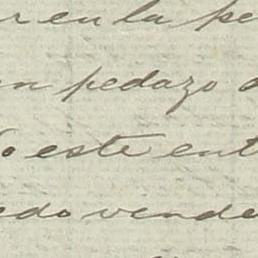 r en la pe
n pedazo d
o este ent
edo vende